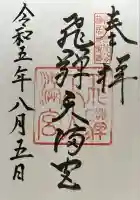 奉拝
飛騨天満宮
令和五年八月五日